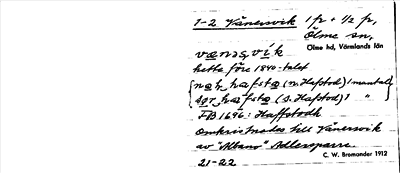 1-2 Vänersvik 1 p + 1/2 p,
Ölme sn,
Ölme hd, Värmlands län
hette före 1840-talet
(n. Hafstod) 1 mantal
(s. Hafstod) 1 "
FB 1696: Haffstodh
Omkristnades till Vänersvik
av "Albano" Adlersparre
C. W. Bromander 1912
21-22